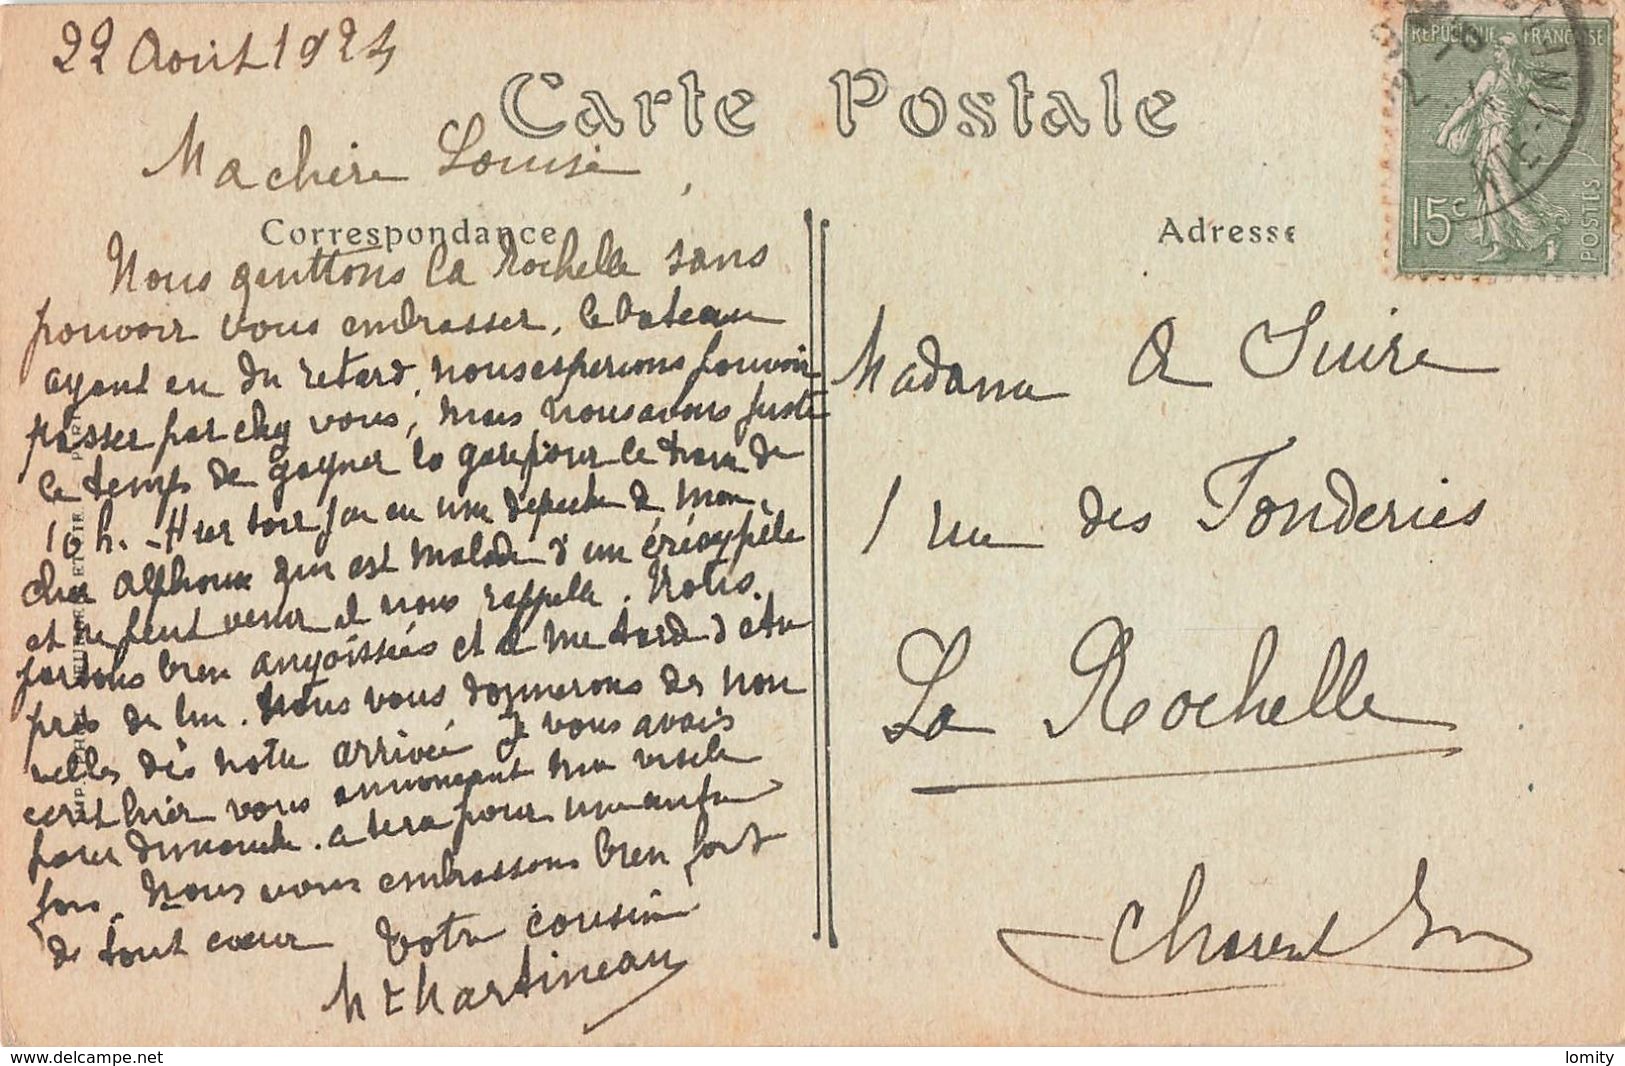 22 Août 1924
Carte Postale
REPUBLIQUE FRANÇAISE
15c
POSTES
Ma chère Louise,
Correspondance
Adresse
Nous quittons la Rochelle sans
pouvoir vous embrasser, le bateau
ayant eu du retard, nous esperions pouvoir
passer par chez vous, mais nous avons juste
le temps de gagner la gare pour le train de
16 h. - Hier soir j'ai eu une depeche de mon
cher Alphonse qui est malade d'un érésypèle
et ne peut venir il nous rappelle. Nous
partons bien angoissées et il me tarde d'etre
près de lui. Nous vous donnerons des nou
velles dès notre arrivée Je vous avais
ecrit hier vous annonçant ma visite
pour dimanche. ce sera pour une autre
fois. Nous vous embrassons bien fort
de tout cœur Votre cousine
M Martineau
Madame A Suire
1 rue des Fonderies
La Rochelle
Charente Inre
delcampe.net
lomity